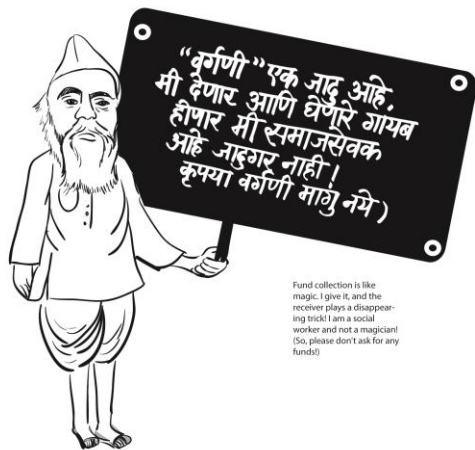 “वर्गणी” एक जादु आहे.
मी देणार आणि घेणारे गायब
होणार मी समाजसेवक
आहे जादुगर नाही!
कृपया वर्गणी मागु नये)
Fund collection is like
magic. I give it, and the
receiver plays a disappear-
ing trick! I am a social
worker and not a magician!
(So, please don't ask for any
funds!)